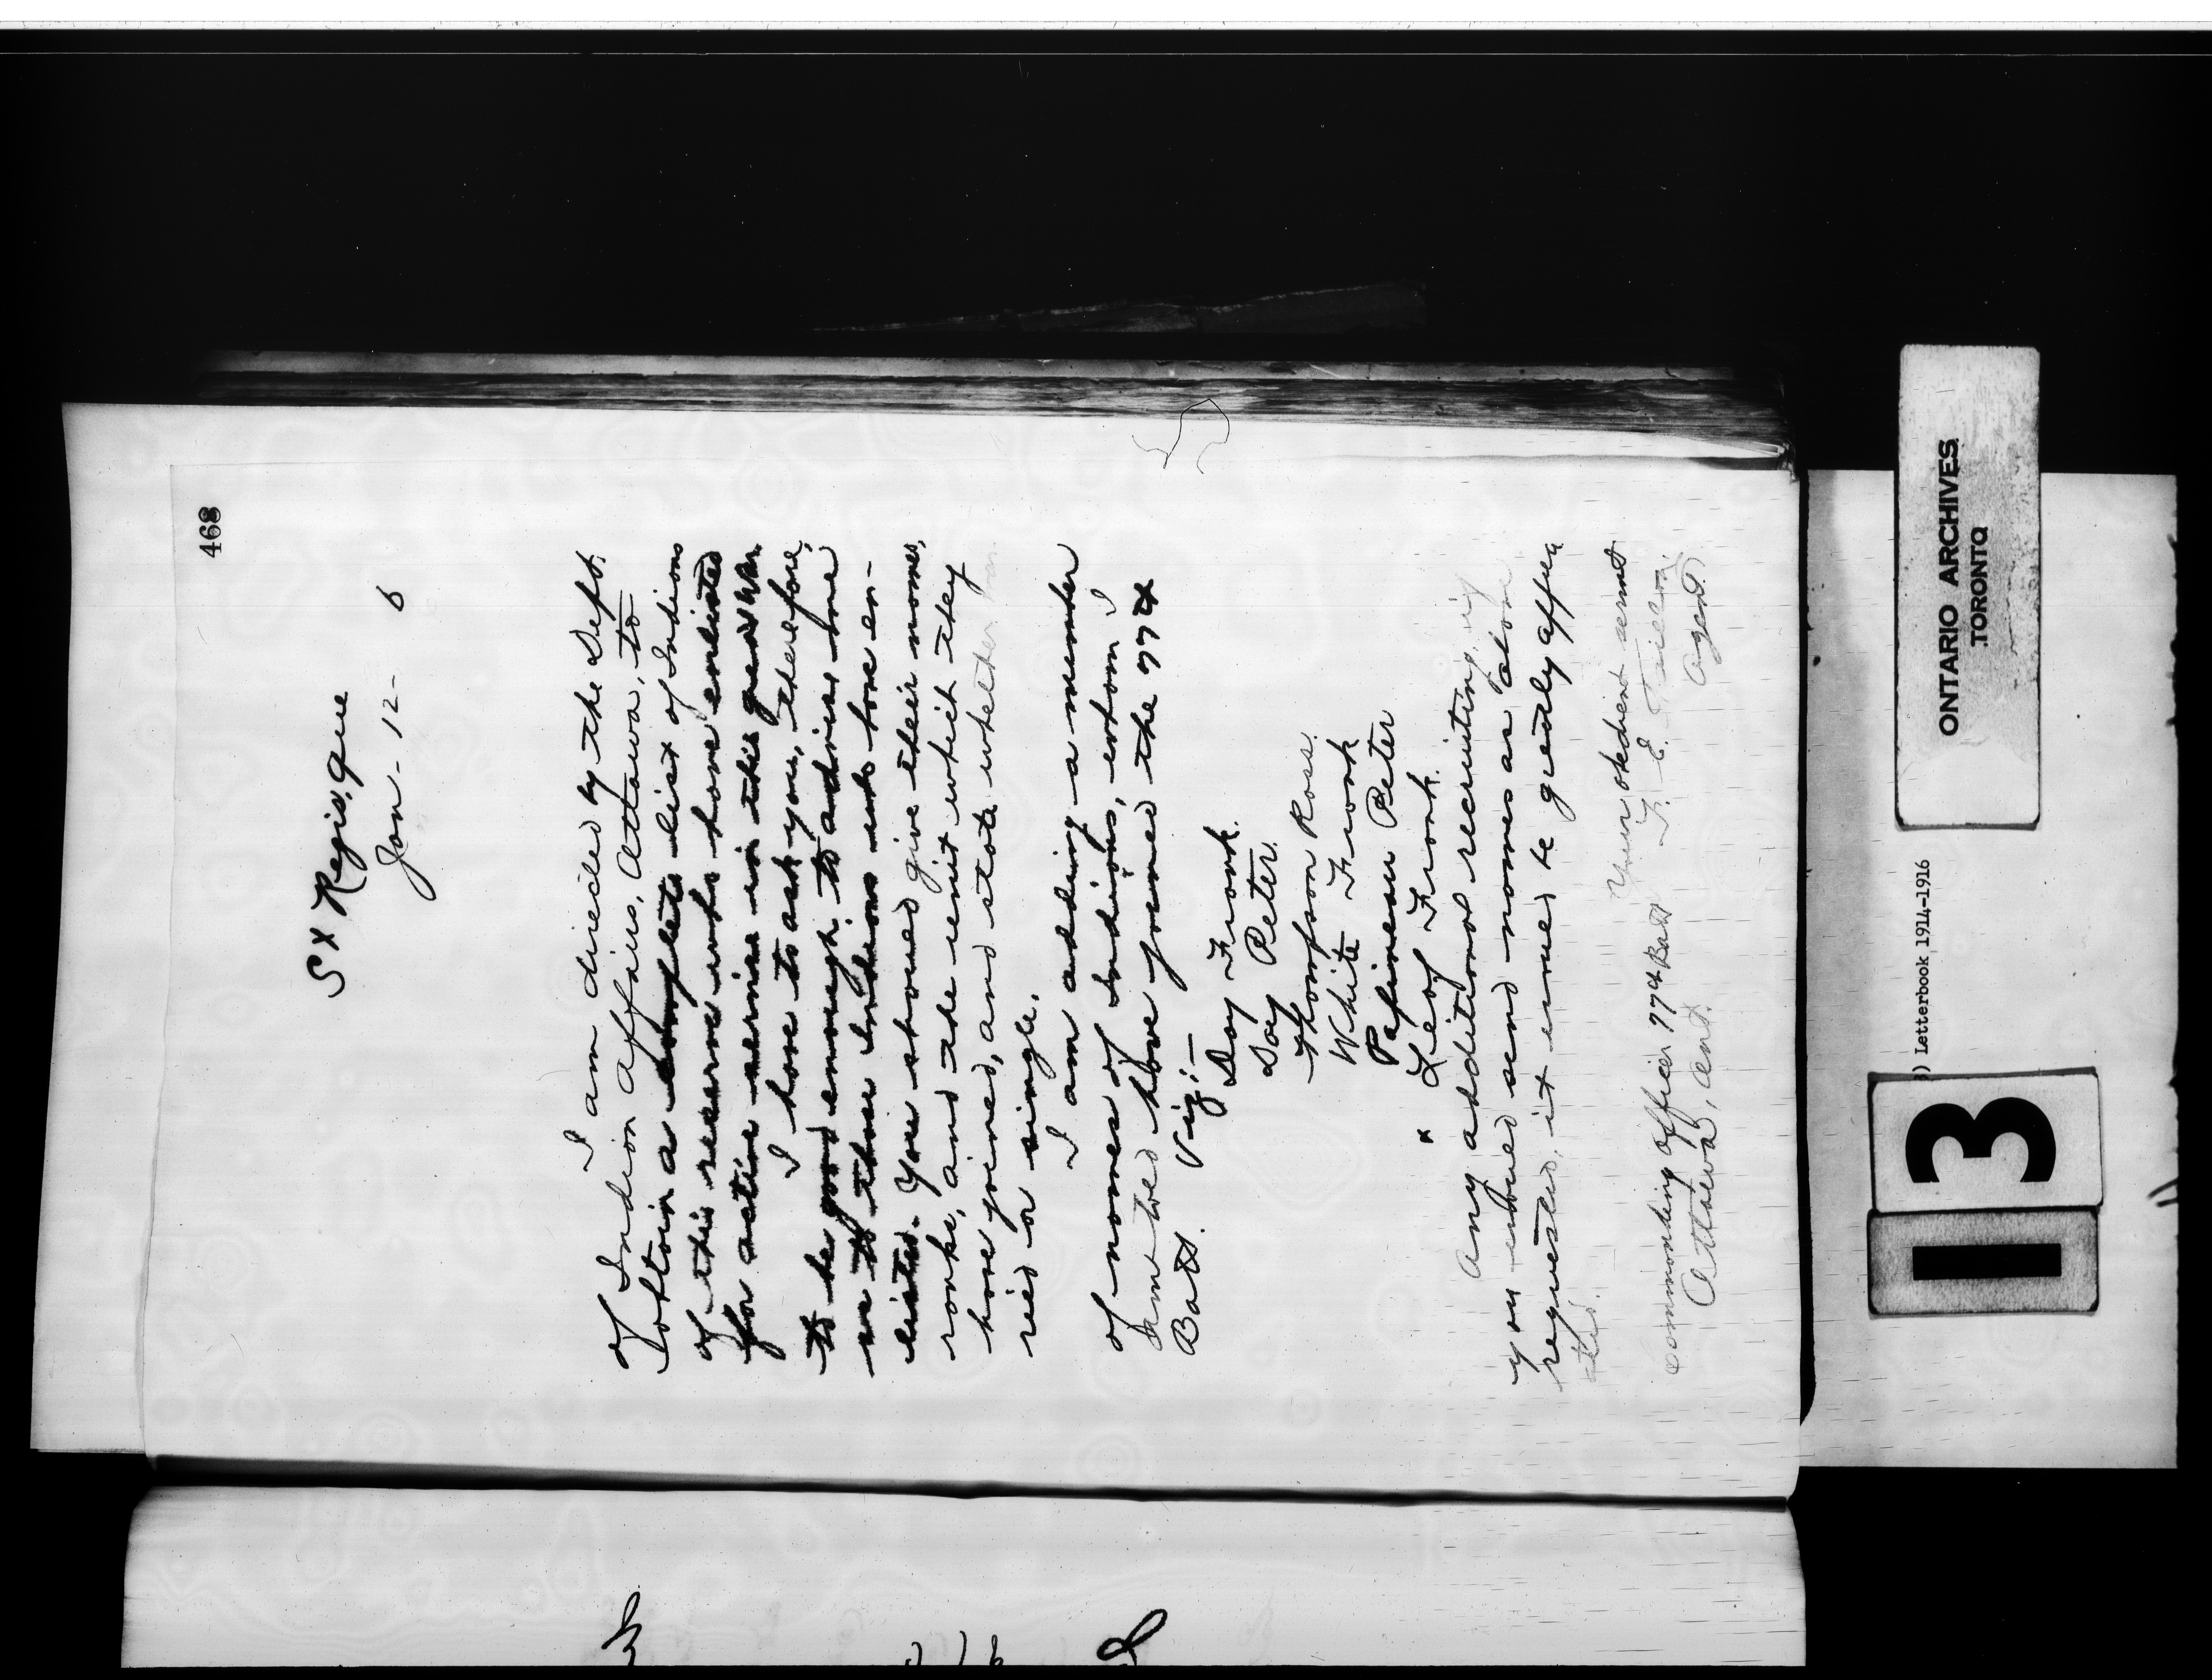 468
St Regis, Que
Jan - 12 - 6
I am directed by the Dept.
of Indian Affairs, Ottawa, to
obtain a complete list of Indians
of this reserve who have enlisted
for active service in this great War.
I have to ask you, therefore,
to be good enough to advise me
as to those Indians who have en-
listed. You should give their names,
ranks, and the unit which they
have joined, and state whether mar
ried or single.
I am adding a number
of names of Indians, whom I
am told have joined the 77th
Batt. Viz:-
Day Frank.
Day Peter.
Thompson Ross.
White Frank
Papineau Peter
x Leaf Frank.
Any additional recruiting,
you would send names as above
requested, it would be greatly appre
ted.
Your obedient servt
Commanding Officer 77th Batt F. E. Taillon,
Ottawa, Ont. Agent
ONTARIO ARCHIVES
TORONTO
) Letterbook 1914-1916
13